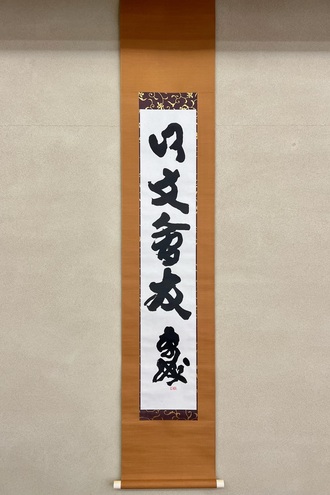 以文會友